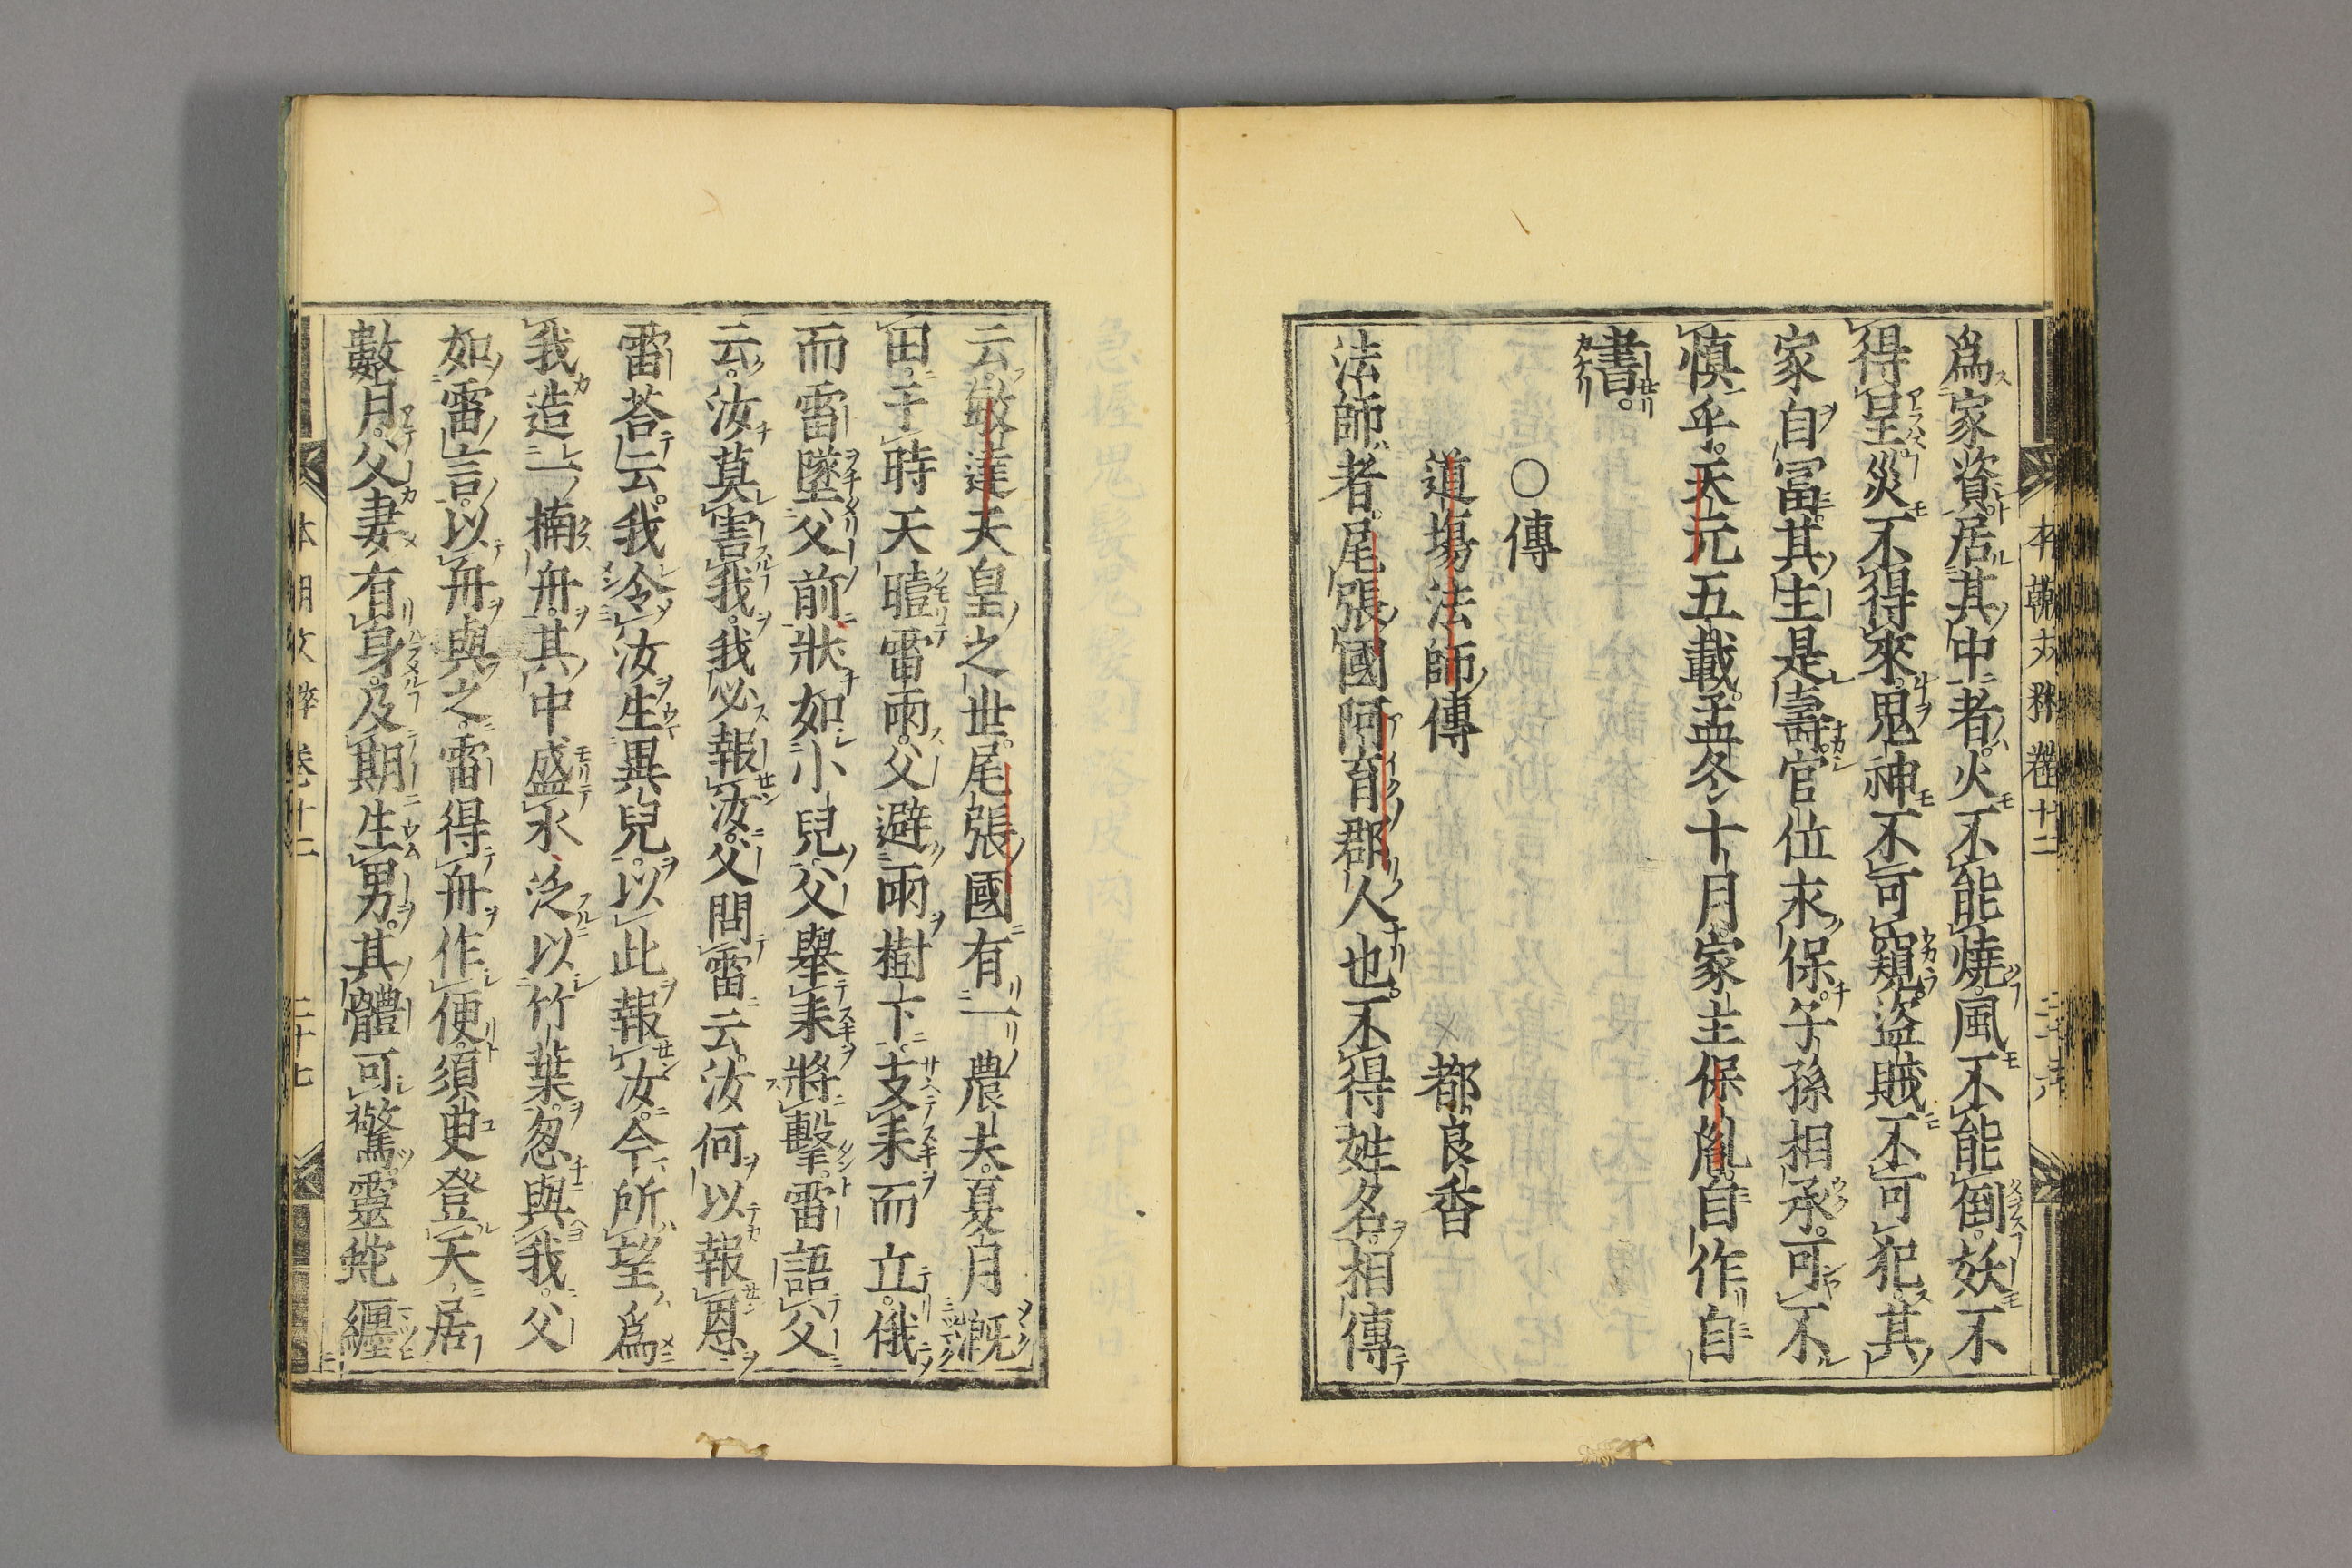 爲家資居其中者火不能燒風不能倒妖不
得呈災不得來鬼神不可窺盜賊不可犯其
家自冨其主是壽官位永保子孫相承可不
慎乎天元五載孟冬十月家主保胤自作自
書
○傳
道塲法師傳 都良香
法師者尾張國阿育郡人也不得姓名相傳
云敏達天皇之世尾張國有一農夫夏月漑
田于時天曀雷雨父避雨樹下支耒而立俄
而雷墜父前狀如小兒父舉耒將擊雷語父
云汝莫害我我必報汝父問雷云汝何以報恩
雷荅云我令汝生異兒以此報汝今所望爲
我造一楠舟其中盛水泛以竹葉忽與我父
如雷言以舟與之雷得舟作便須臾登天居
數月父妻有身及期生男其體可驚靈蛇纒
本朝文粹卷十二
本朝文粹卷十二 二十七